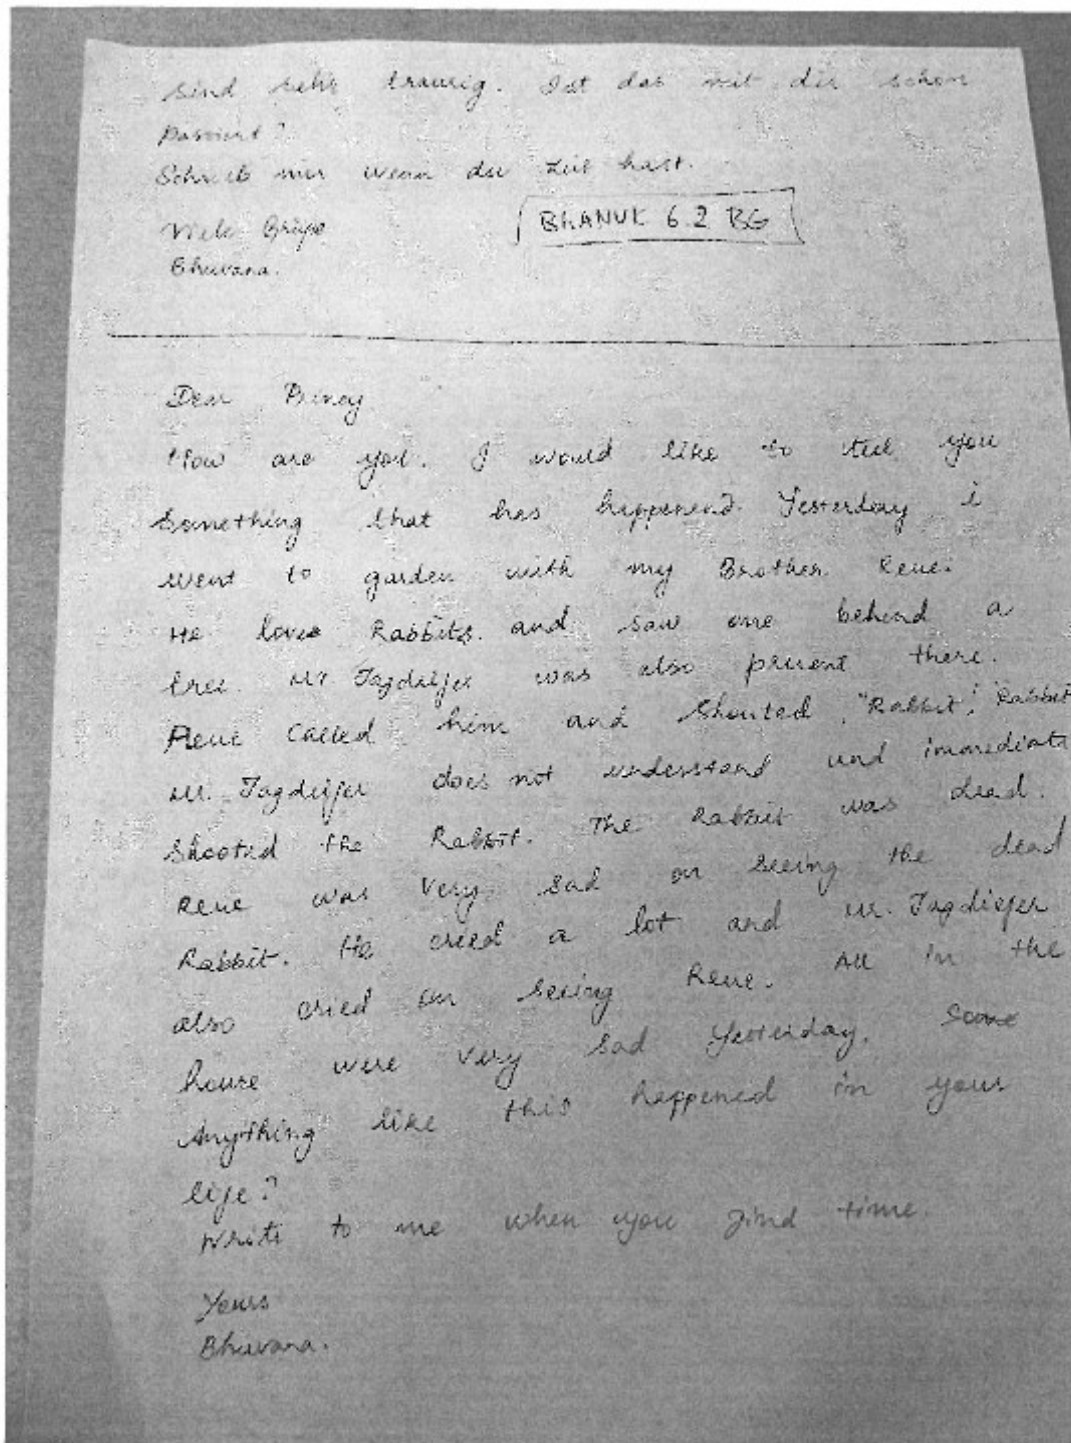 sind sehr traurig. Ist das mit dir schon
passiert?
Schreib mir wenn du zeit hast.
Viele Grüße
Bhuvana.
BHANUK 6.2 BG
Dear
How are you. I would like to tell you
Something that has happenend. Yesterday i
went to garden with my Brother Rene.
He loves Rabbits. and saw one behind a
tree. Mr Jagdeifer was also present there.
Rene called him and shouted, "Rabbit", "Rabbit
Mr. Jagdeifer does not understand und immediate
shooted the Rabbit. The Rabbit was dead.
Rene was very sad on seeing the dead
Rabbit. He cried a lot and Mr. Jagdiefer
also cried on seeing Rene. All in the
house were very sad yesterday.
Anything like this happened in your
life?
Write to me when you find time.
Yours
Bhuvana.